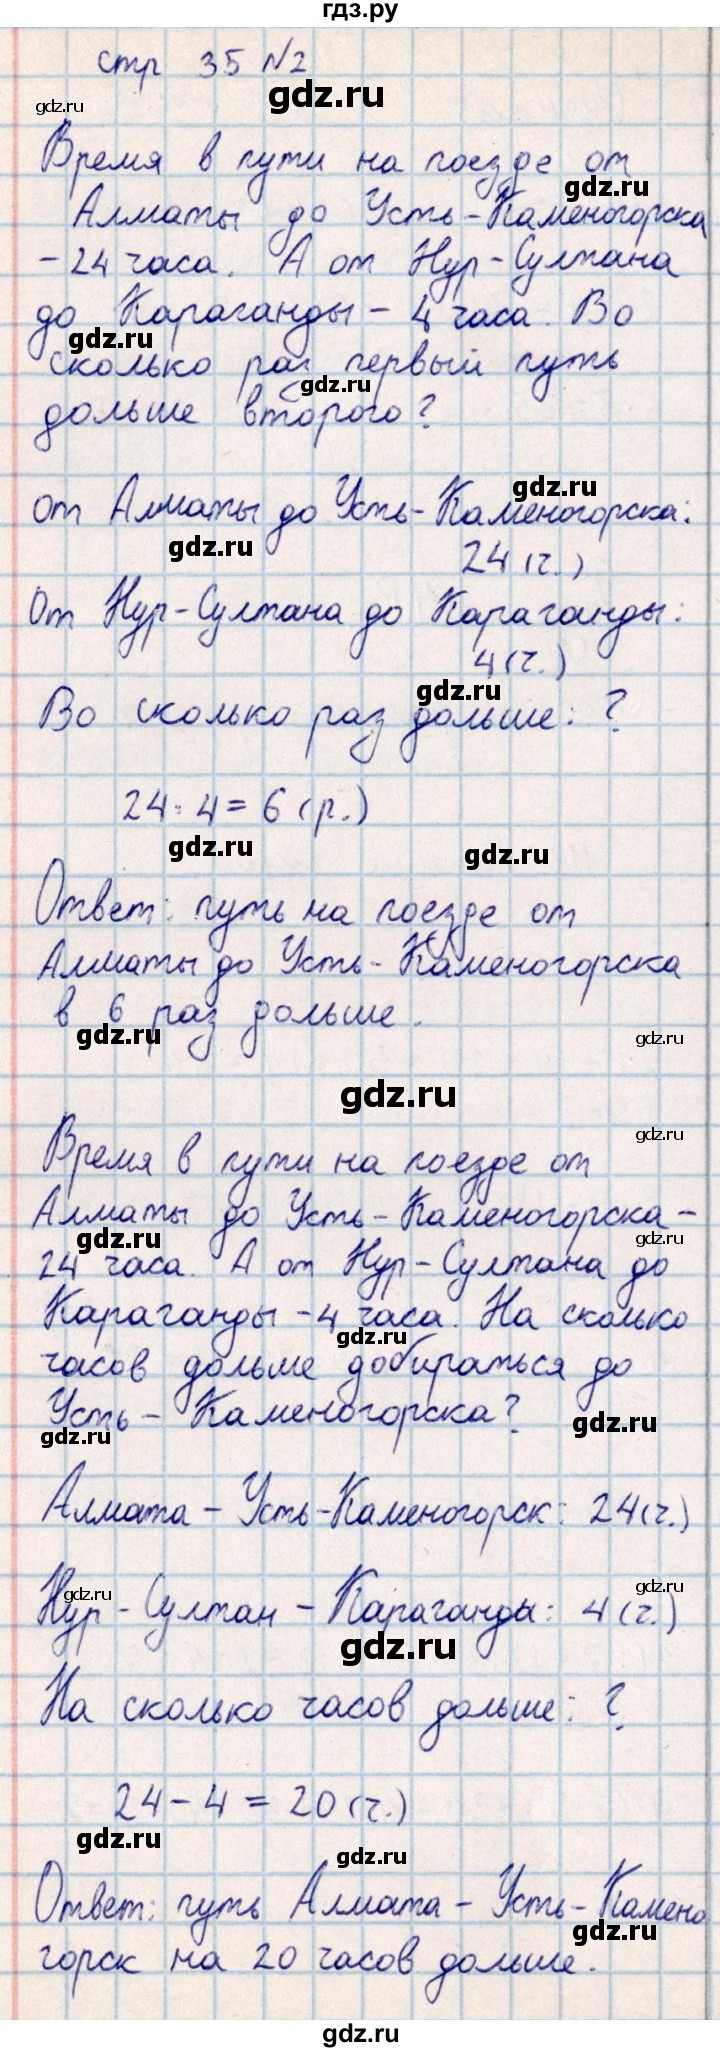 гдз.ру
стр 35 №2
gdz.ru
gdz.ru
Время в пути на поезде от
gdz.ru
Алматы до Усть-Каменогорска
- 24 часа. А от Нур-Султана
до Караганды - 4 часа. Во
gdz.ru
сколько раз первый путь
gdz.ru
дольше второго?
gdz.ru
от Алматы до Усть-Каменогорска:
gdz.ru
24 (ч.)
От Нур-Султана до Караганды:
4 (ч.)
gdz.ru
Во сколько раз дольше: ?
24 : 4 = 6 (р.)
gdz.ru
gdz.ru
Ответ: путь на поезде от
Алматы до Усть-Каменогорска
в 6 раз дольше.
gdz.ru
gdz.ru
gdz.ru
gdz.ru
Время в пути на поезде от
Алматы до Усть-Каменогорска -
gdz.ru
gdz.ru
24 часа. А от Нур-Султана до
Караганды - 4 часа. На сколько
gdz.ru
часов дольше добираться до
Усть-Каменогорска?
gdz.ru
gdz.ru
Алмата - Усть-Каменогорск: 24 (ч.)
gdz.ru
gdz.ru
Нур-Султан - Караганды: 4 (ч.)
gdz.ru
На сколько часов дольше: ?
24 - 4 = 20 (ч.)
gdz.ru
gdz.ru
Ответ: путь Алмата - Усть-Камено
gdz.ru
горск на 20 часов дольше.
gdz.ru